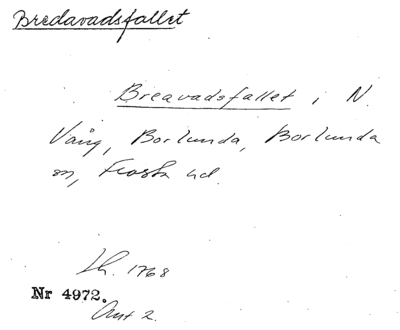 Bredavadsfallet
Breavadsfallet i N.
Vång, Borlunda, Borlunda
sn, Frosta hd.
Lh. 1768
Nr 4972.
Akt 2.